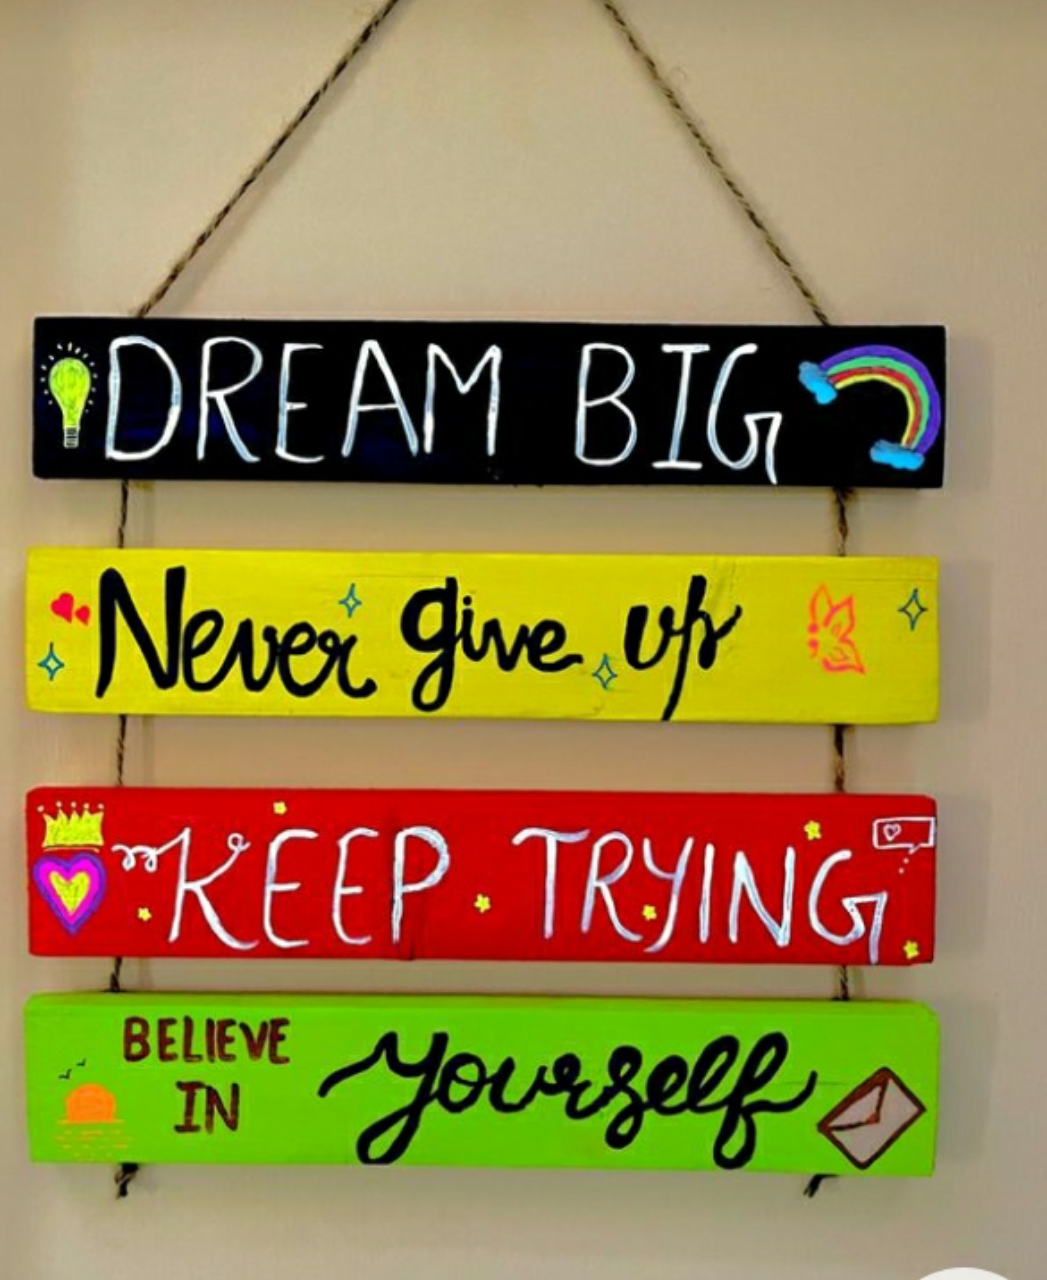 DREAM BIG
Never give up
KEEP TRYING
BELIEVE
IN yourself